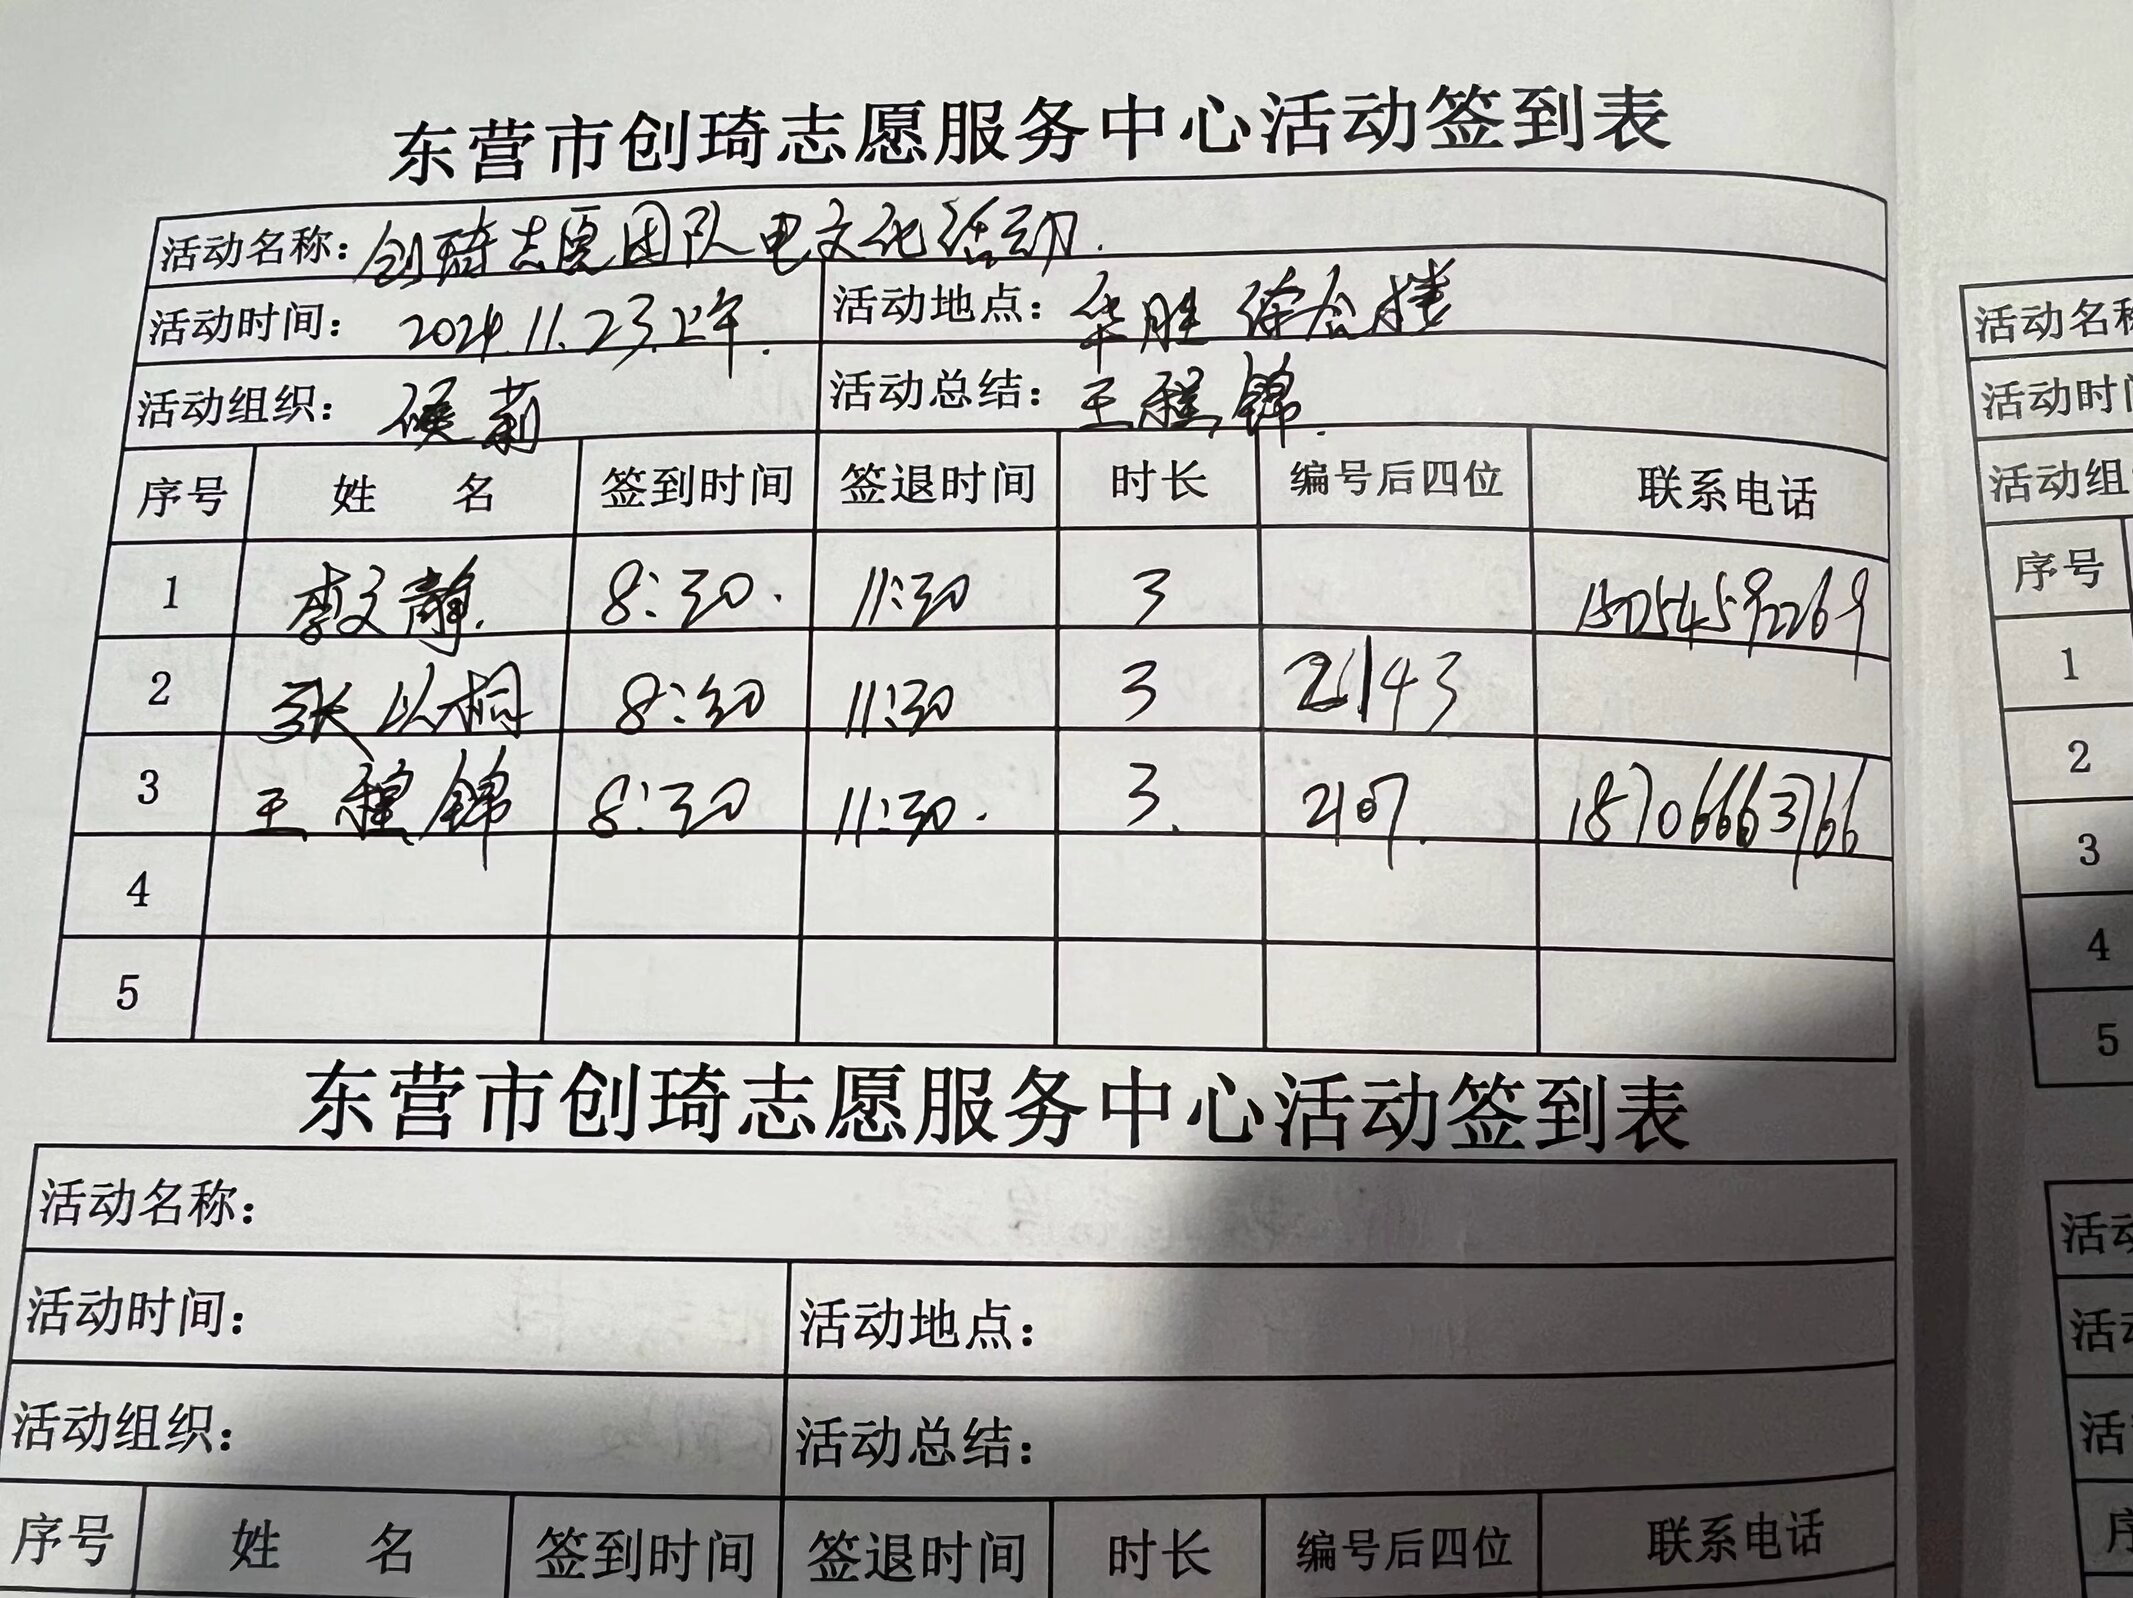 东营市创琦志愿服务中心活动签到表
活动名称：创琦志愿团队电文化活动.
活动时间： 2024.11.23上午. 活动地点：华胜综合楼
活动组织： 侯莉 活动总结：王程锦.
序号 姓 名 签到时间 签退时间 时长 编号后四位 联系电话
1 李文静. 8:30. 11:30 3 15054592269
2 张以桐 8:30 11:30 3 2143
3 王程锦 8:30 11:30. 3. 2107. 18706663766
4
5
东营市创琦志愿服务中心活动签到表
活动名称：
活动时间： 活动地点：
活动组织： 活动总结：
序号 姓 名 签到时间 签退时间 时长 编号后四位 联系电话
活动名称
活动时间
活动组
序号
1
2
3
4
5
活动
活动
活